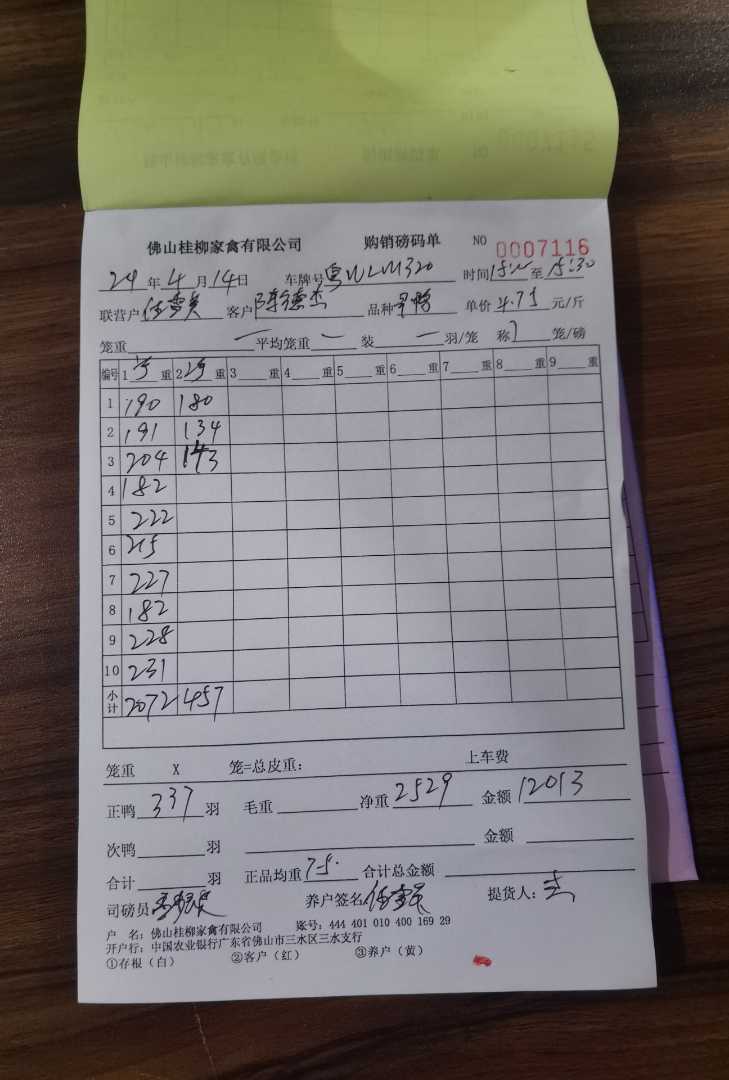 佛山桂柳家禽有限公司 购销磅码单 NO 0007116
24年4月14日 车牌号粤WLM320 时间 至15:30
联营户 客户陈德杰 品种 单价4.75元/斤
笼重 一 平均笼重 一 装 一 羽/笼 称 笼/磅
编号 1 重 2 重 3 重 4 重 5 重 6 重 7 重 8 重 9 重
1 190 180
2 191 134
3 204 143
4 182
5 222
6 215
7 227
8 182
9 228
10 231
小计 2072 457
笼重 X 笼=总皮重: 上车费
正鸭 337 羽 毛重 净重 2529 金额 12013
次鸭 羽 金额
合计 羽 正品均重 7.5 合计总金额
司磅员 养户签名 提货人:
户 名: 佛山桂柳家禽有限公司 账号: 444 401 010 400 169 29
开户行: 中国农业银行广东省佛山市三水区三水支行
①存根(白) ②客户(红) ③养户(黄)